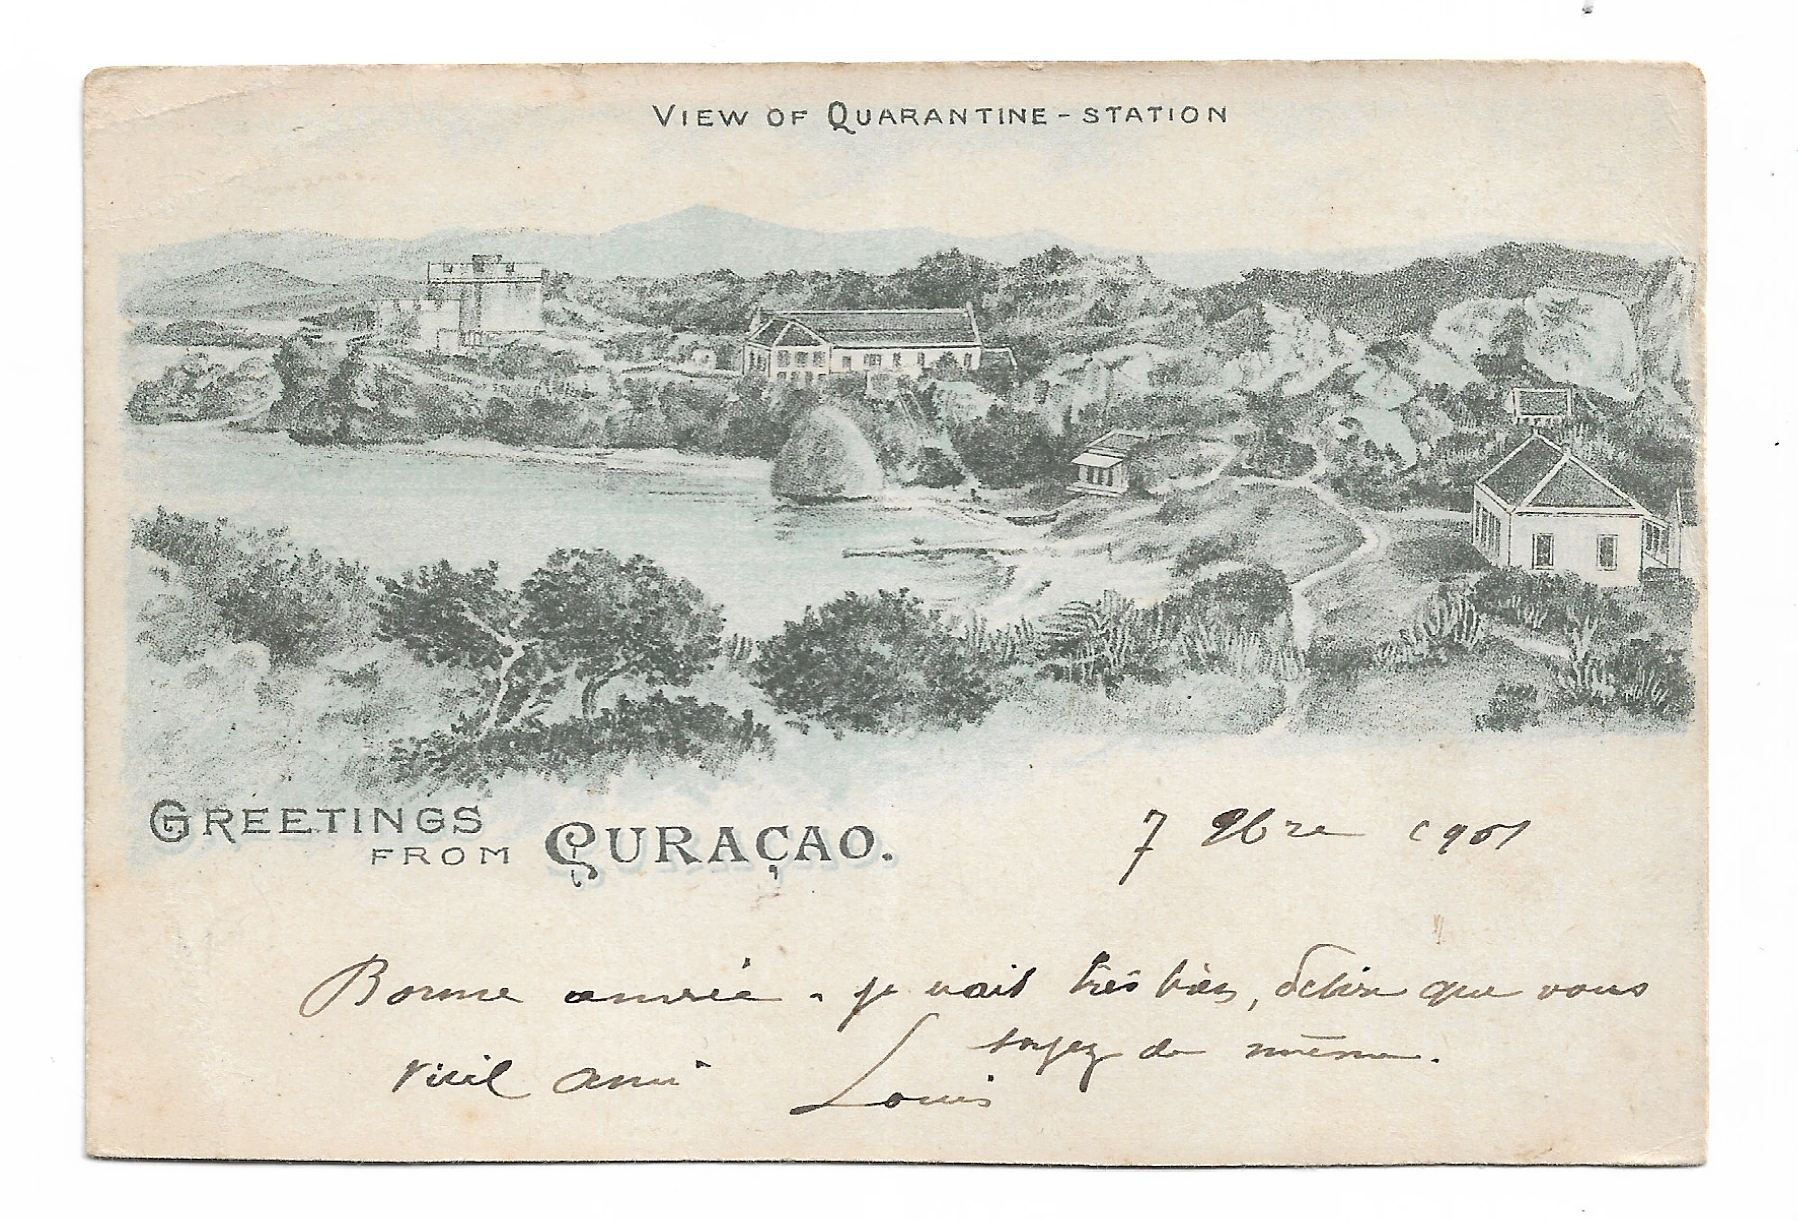 VIEW OF QUARANTINE-STATION
GREETINGS
FROM CURAÇAO.
7 9bre 1901
Bonne année. je vais très bien, désire que vous
soyez de même.
vieil ami Louis